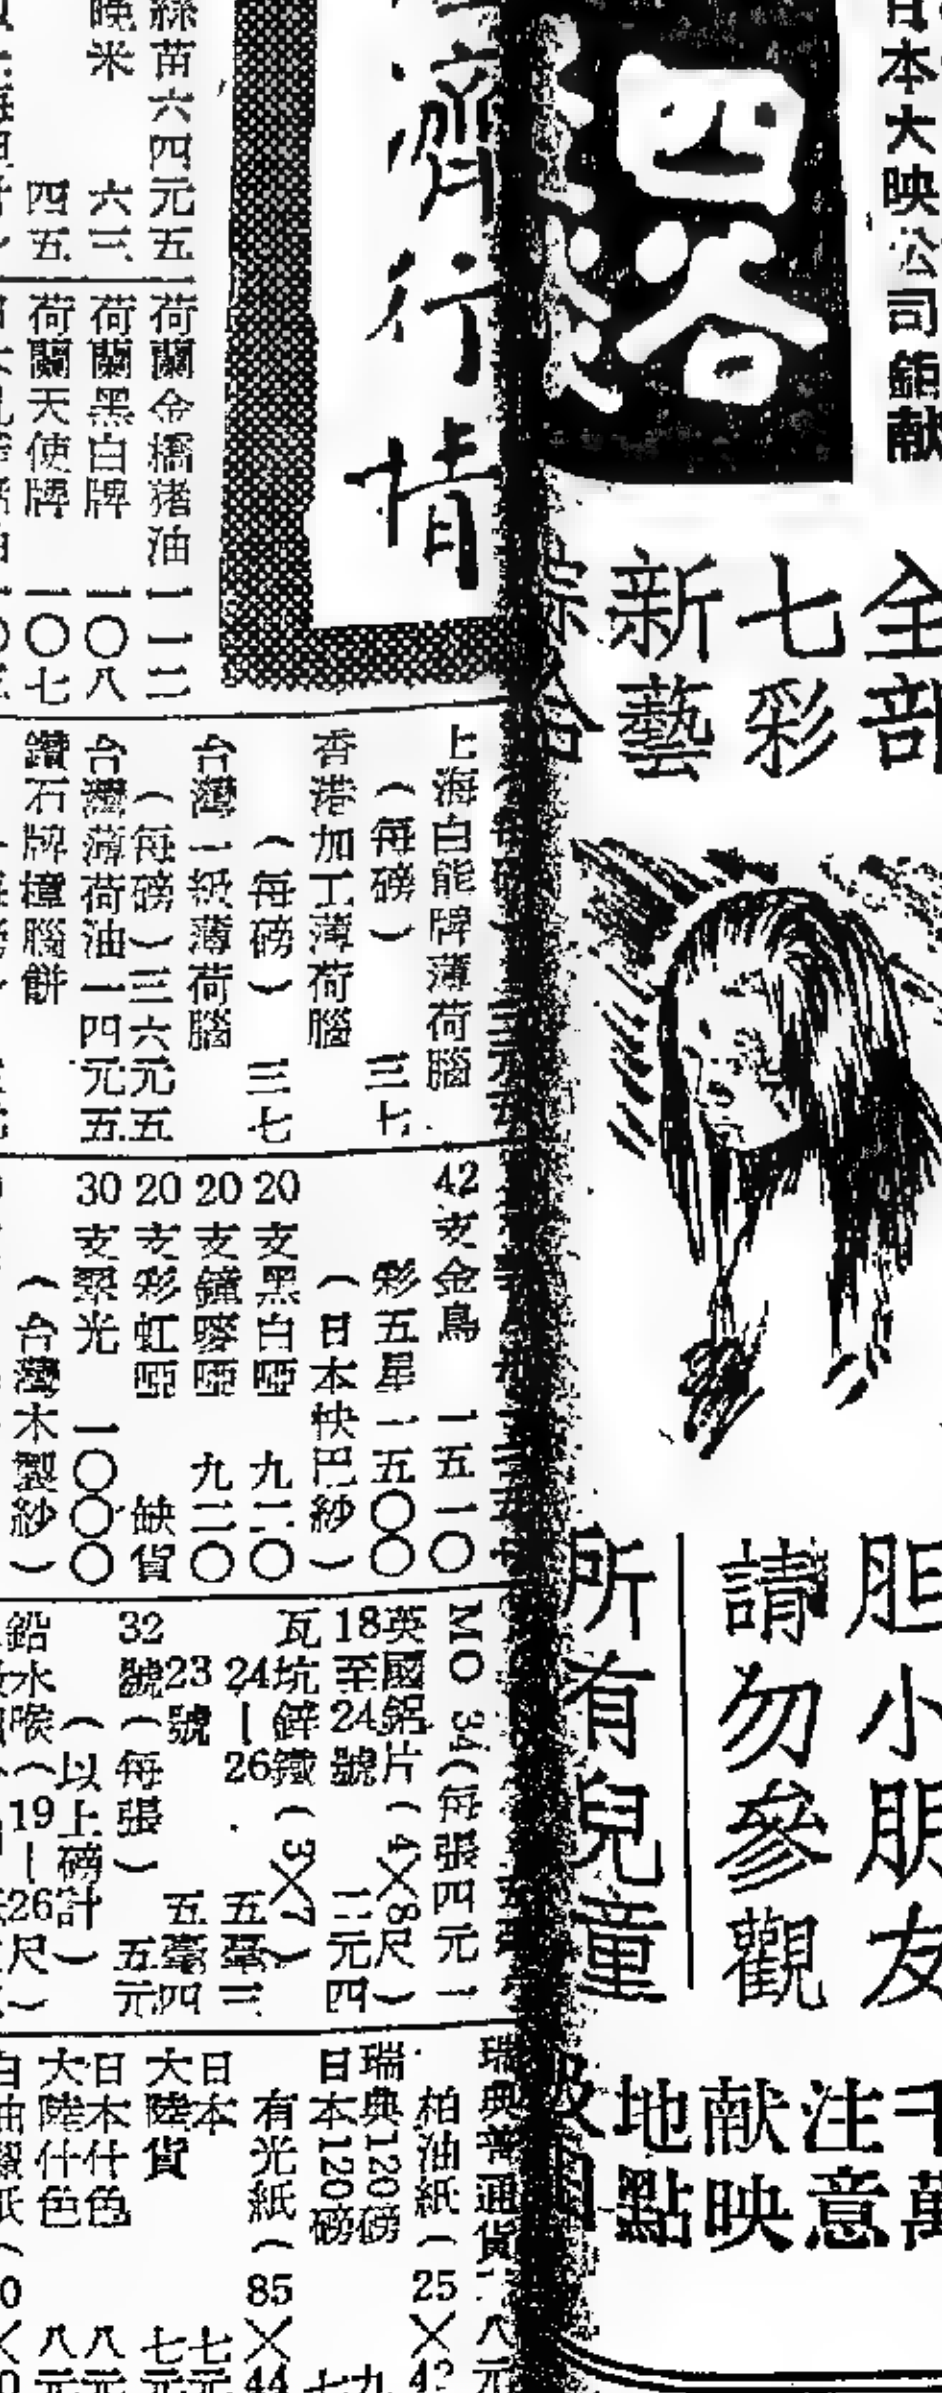 日本大映公司鉅献
四谷
全部
七彩
新藝
綜合
胆小朋友
請勿參觀
所有兒童
千萬
注意
献映
地點
濟行情
絲苗六四元五
晚米 六三
四五
荷蘭金橋猪油 一一二
荷蘭黑白牌 一〇八
荷蘭天使牌 一〇七
上海白熊牌薄荷腦
(每磅) 三七
香港加工薄荷腦
(每磅) 三七
台灣一級薄荷腦
(每磅)三六元五
台灣薄荷油一四元五
鑽石牌樟腦餅
42支金鳥 一五一〇
彩五星一五〇〇
(日本快巴紗)
20支黑白啞 九二〇
20支鐘嘜啞 九二〇
20支彩虹啞 缺貨
30支翠光 一〇〇〇
(台灣木製紗)
MO 34(每張四元一
英國鋁片(4×8尺)
18至24號 二元四
瓦坑鋅鐵(3×7)
24—26 五毫三
23號 五毫四
32號(每張) 五元
(以上磅計)
鉛水喉(19—26尺)
瑞典普通貨 八元
柏油紙(25×42
瑞典120磅 九
日本120磅 七
有光紙(85×44
日本 七元
大陸貨 七元
日本什色 八元
大陸什色 八元